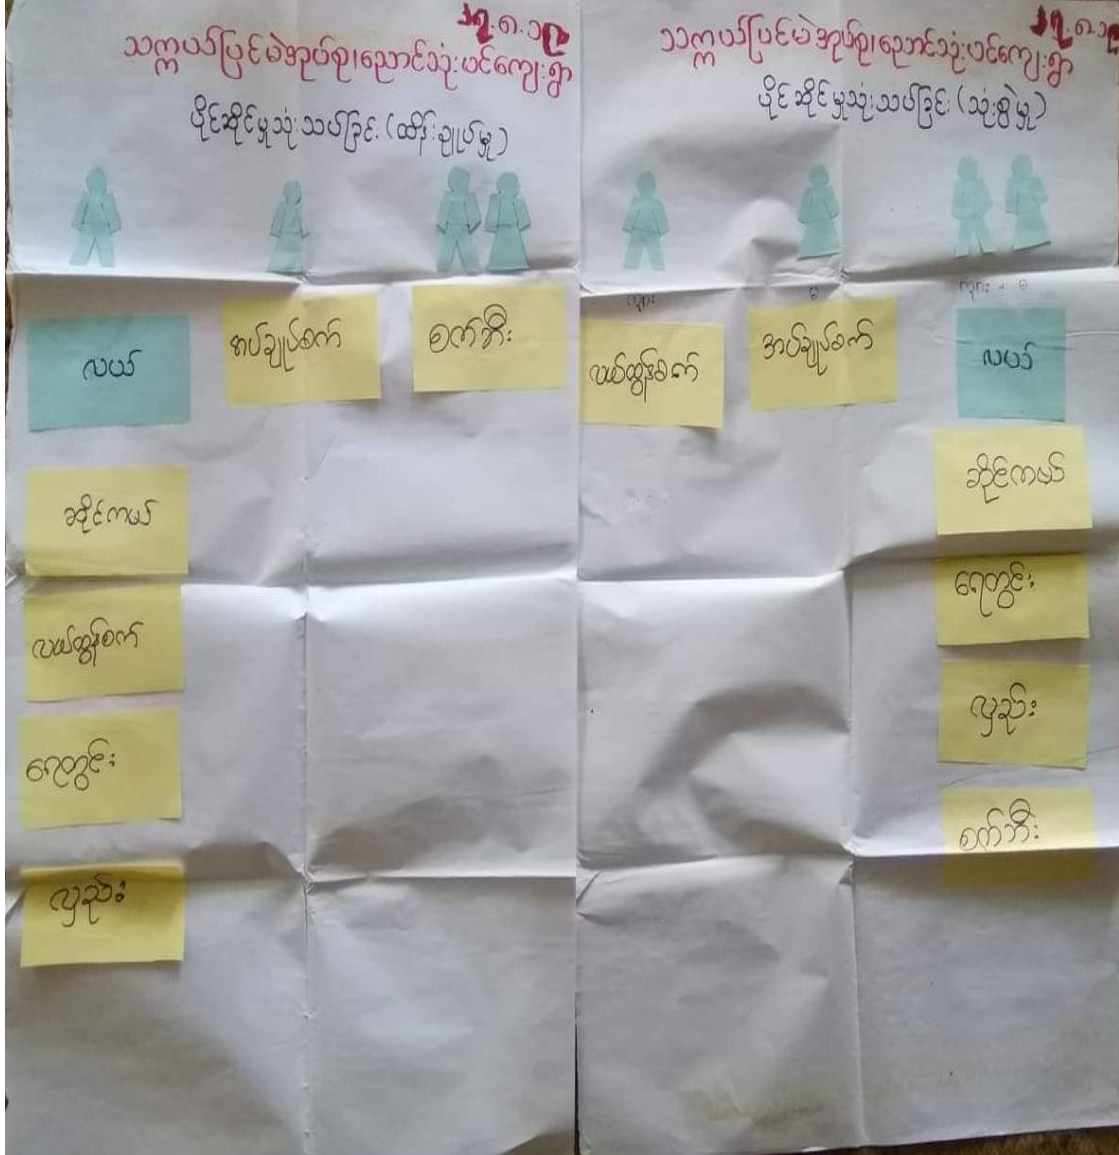 ၁၇.၈.၁၉
သက္ကယ်ပြင်မဲအုပ်စု၊ညောင်သုံးပင်ကျေးရွာ
ပိုင်ဆိုင်မှုသုံးသပ်ခြင်း (ထိန်းချုပ်မှု)
လယ်
အပ်ချုပ်စက်
စက်ဘီး
ဆိုင်ကယ်
လယ်ထွန်စက်
ရေတွင်း
လှည်း
၁၇.၈.၁၉
သက္ကယ်ပြင်မဲအုပ်စု၊ညောင်သုံးပင်ကျေးရွာ
ပိုင်ဆိုင်မှုသုံးသပ်ခြင်း (သုံးစွဲမှု)
ကျား
မ
ကျား + မ
လယ်ထွန်စက်
အပ်ချုပ်စက်
လယ်
ဆိုင်ကယ်
ရေတွင်း
လှည်း
စက်ဘီး